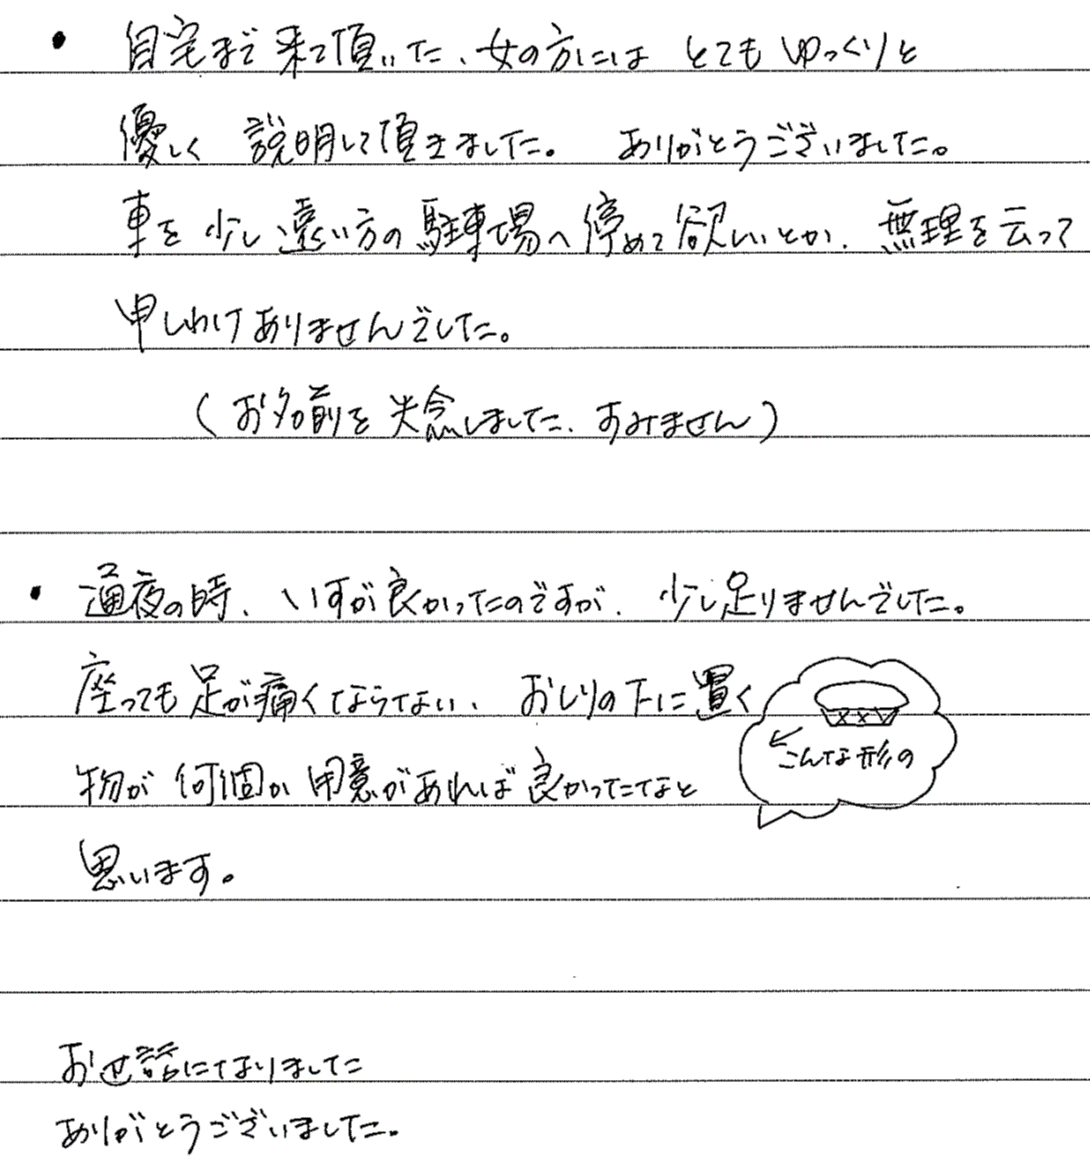 ・ 自宅まで来て頂いた、女の方には とてもゆっくりと
優しく 説明して頂きました。 ありがとうございました。
車を少し遠い方の駐車場へ停めて欲しいとか、無理を云って
申しわけありませんでした。
（お名前を失念しました、すみません）
・ 通夜の時、いすが良かったのですが、少し足りませんでした。
座っても足が痛くならない、おしりの下に置く
←こんな形の
物が何個か用意があれば良かったなと
思います。
お世話になりました
ありがとうございました。